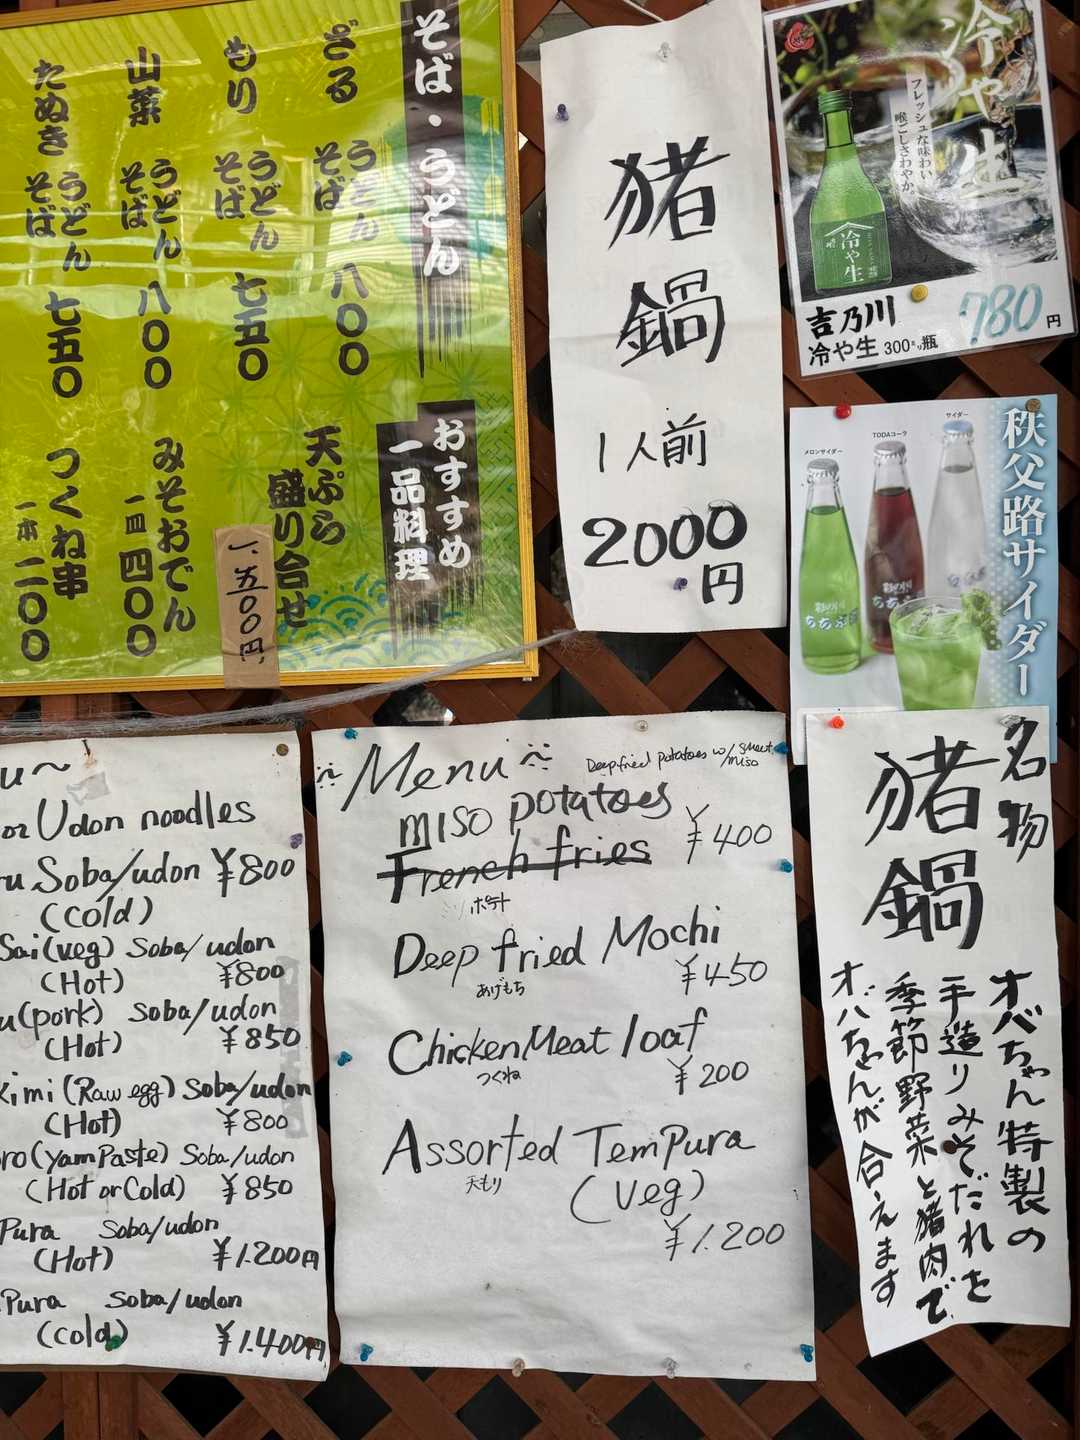 そば・うどん
ざる うどん そば 八〇〇
もり うどん そば 七五〇
山菜 うどん そば 八〇〇
たぬき うどん そば 七五〇
おすすめ
一品料理
天ぷら
盛り合せ
一、五〇〇円
みそおでん
一皿 四〇〇
つくね串
一本 二〇〇
猪鍋
1人前
2000
円
冷や生
フレッシュな味わい
喉ごしさわやか。
冷や生
吉乃川
冷や生 300ml瓶
780円
秩父路サイダー
メロンサイダー
TODAコーラ
サイダー
名物
猪鍋
オバちゃん特製の
手造りみそだれを
季節野菜と猪肉で
オバちゃんが合えます
u~
or Udon noodles
ru Soba/udon ¥800
(cold)
Sai(veg) Soba/udon
(Hot) ¥800
u(pork) Soba/udon
(Hot) ¥850
kimi (Raw egg) Soba/udon
(Hot) ¥800
oro(yam Paste) Soba/udon
(Hot or Cold) ¥850
Pura Soba/udon
(Hot) ¥1.200円
Pura Soba/udon
(cold) ¥1.400円
Menu
Deep fried potatoes w/ sweet miso
miso potatoes
French fries ¥400
ミソ ポテト
Deep fried Mochi
あげもち ¥450
Chicken Meat loaf
つくね ¥200
Assorted TemPura
天もり (veg)
¥1.200